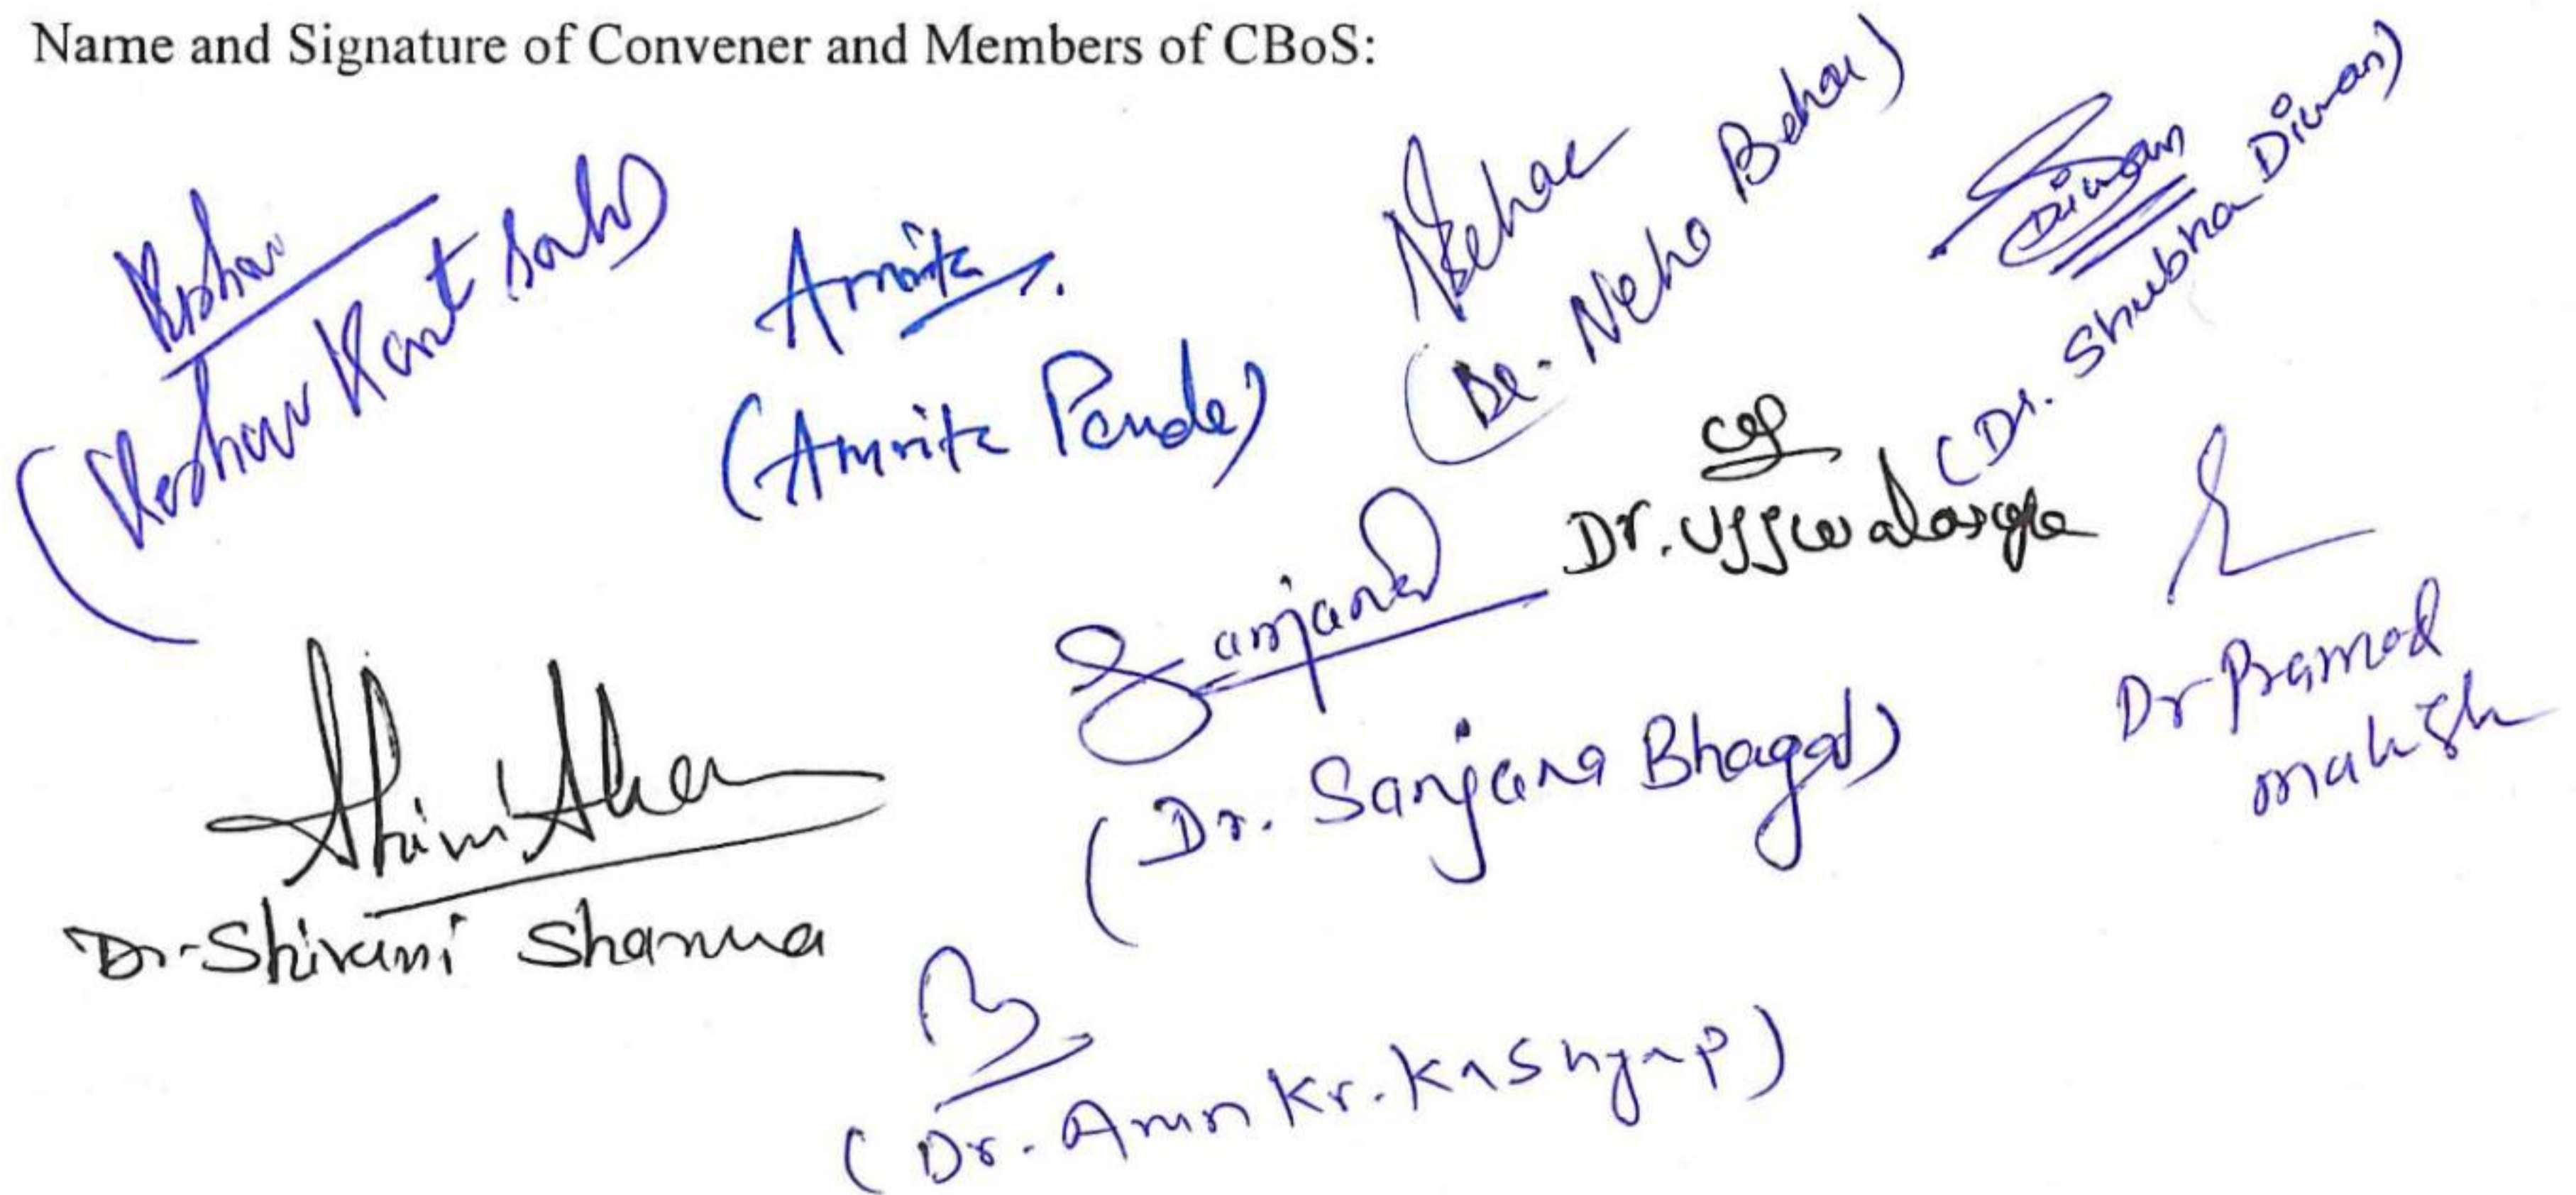 Name and Signature of Convener and Members of CBoS:
Keshav
(Keshav Kant Sahu)
Amrita
(Amrita Pande)
Neha
(Dr. Neha Behar)
Diwan
(Dr. Shubha Diwan)
Dr.
Sanjana
(Dr. Sanjana Bhagat)
Dr Pramod
mahish
Dr. Shivani Sharma
(Dr. Arun Kr. Kashyap)